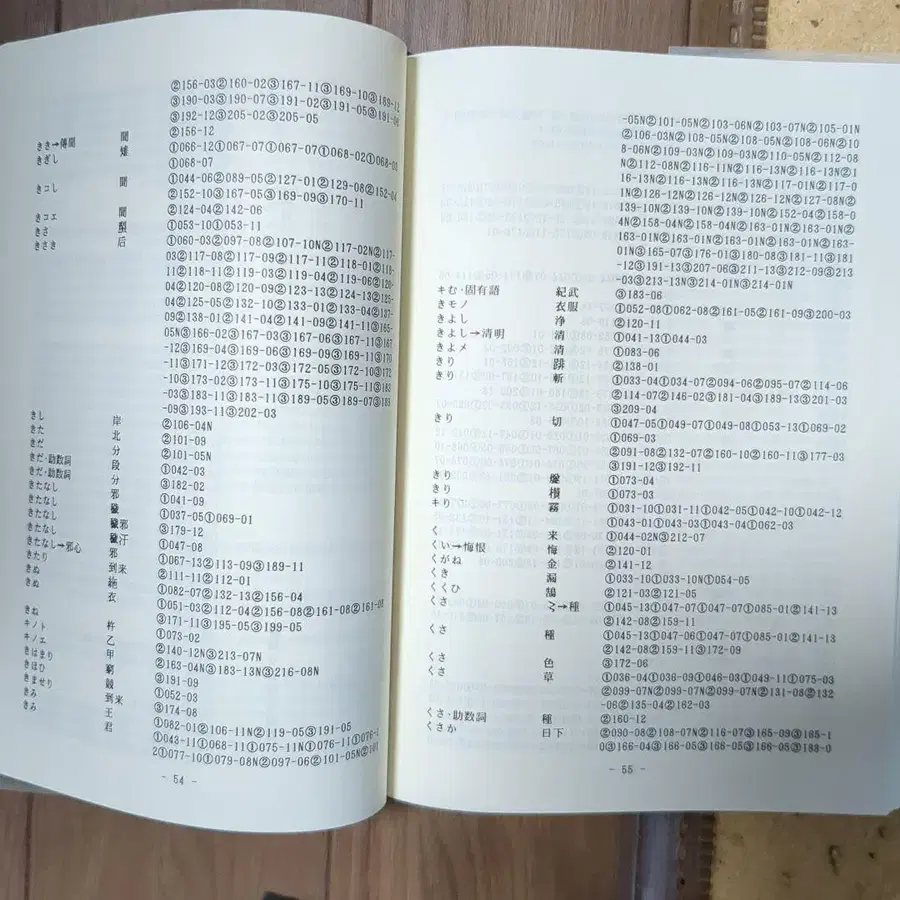 ②156-03②160-02③167-11③169-10③169-12
③190-03③190-07③191-02③191-05③191-06
③192-12③205-02③205-05
きき→傳聞 聞 ②156-12
きぎし 雉 ①066-12①067-07①067-07①068-02①068-03
①068-07
きコし 聞 ①044-06②089-05②127-01②129-08②152-04
②152-10③167-05③169-09③170-11
きコエ 聞 ②124-04②142-06
きさ ①053-10①053-11
きさき 后 ①060-03②097-08②107-10N②117-02N②117-
03②117-08②117-09②117-11②118-01②118-
11②118-11②119-03②119-04②119-06②120-
04②120-08②120-09②123-12②124-13②125-
04②125-05②132-10②133-01②133-04②137-
09②138-01②141-04②141-09②141-11③165-
05N③166-02③167-03③167-06③167-11③167
-12③169-04③169-06③169-09③169-11③170
-11③171-12③172-03③172-05③172-10③172
-10③173-02③173-11③175-10③175-11③183
-03③183-11③183-11③189-05③189-07③189
-09③193-11③202-03
きし 岸 ②106-04N
きた 北 ②101-09
きだ 分 ②101-05N
きだ・助数詞 段 ①042-03
きだ・助数詞 分 ③182-02
きたなし 邪 ①041-09
きたなし ①037-05①069-01
きたなし 邪 ③179-12
きたなし 汙 ①047-08
きたなし→邪心 邪 ①067-13②113-09③189-11
きたり 到来 ②111-11②112-01
きぬ 絁 ①082-07②132-13②156-04
きぬ 衣 ①051-03②112-04②156-08②161-08②161-08
③171-11③195-05③199-05
きね 杵 ①073-02
キノト 乙 ②140-12N③213-07N
キノエ 甲 ②163-04N③183-13N③216-08N
きはまり 窮 ③191-09
きほひ ①052-03
きませり 到来 ③174-08
きみ 王 ①082-01②106-11N②119-05③191-05
きみ 君 ①043-11①068-11①075-11N①076-11①076-1
2①077-10①079-08N②097-06②101-05N②101
- 54 -
-05N②101-05N②103-06N②103-07N②105-01N
②106-03N②108-05N②108-05N②106-02N②10
8-06N②109-03N②109-10N②110-05N②112-08
N②112-08N②116-11N②116-13N②116-13N②1
16-13N②116-13N②116-13N②117-01N②117-0
1N②126-12N②126-12N②126-12N②127-08N②
139-10N②139-10N②139-10N②152-04②158-0
4N②158-04N②158-04N②163-01N②163-01N②1
63-01N②163-01N②163-01N②163-01N②163-0
1N③165-07③176-01③180-08③181-11③181
-12③191-03③207-06③211-13③212-09③213
-03N③213-13N③214-01N③214-01N
キむ・固有語 紀武 ③183-06
きモノ 衣服 ①052-08①062-08②161-05②161-09③200-03
きよし 浄 ②120-11
きよし→清明 清 ①041-13①044-03
きよメ 清 ①083-06
きり ②138-01
きり 斬 ①033-04①034-07②094-06②095-07②114-06
②114-07②146-02③181-04③189-13③201-03
③209-04
きり 切 ①047-05①049-07①049-08①053-13①069-02
①069-03
②091-08②132-07②160-10②160-11③177-03
③191-12③192-11
きり ①073-04
きり 榾 ①073-03
キリ 霧 ①031-10①031-11①042-05①042-10①042-12
①043-01①043-03①043-04①062-03
く 来 ①044-02N③212-07
くい→悔恨 悔 ②120-01
くがね 金 ②141-12
くき 漏 ①033-10①033-10N①054-05
くくひ 鵠 ②121-03②121-05
くさ →種 ①045-13①047-07①047-07①085-01②141-13
②142-08②159-11
くさ 種 ①045-13①047-06①047-07①085-01②141-13
②142-08②159-11③172-09
くさ 色 ③172-06
くさ 草 ①036-04①036-09①046-03①049-11①075-03
②099-07N②099-07N②099-07N②131-08②132
-06②135-04②162-03
くさ・助数詞 種 ②160-12
くさか 日下 ②090-08②108-07N②116-07③165-09③165-1
0③166-04③166-05③166-05③166-05③188-0
- 55 -